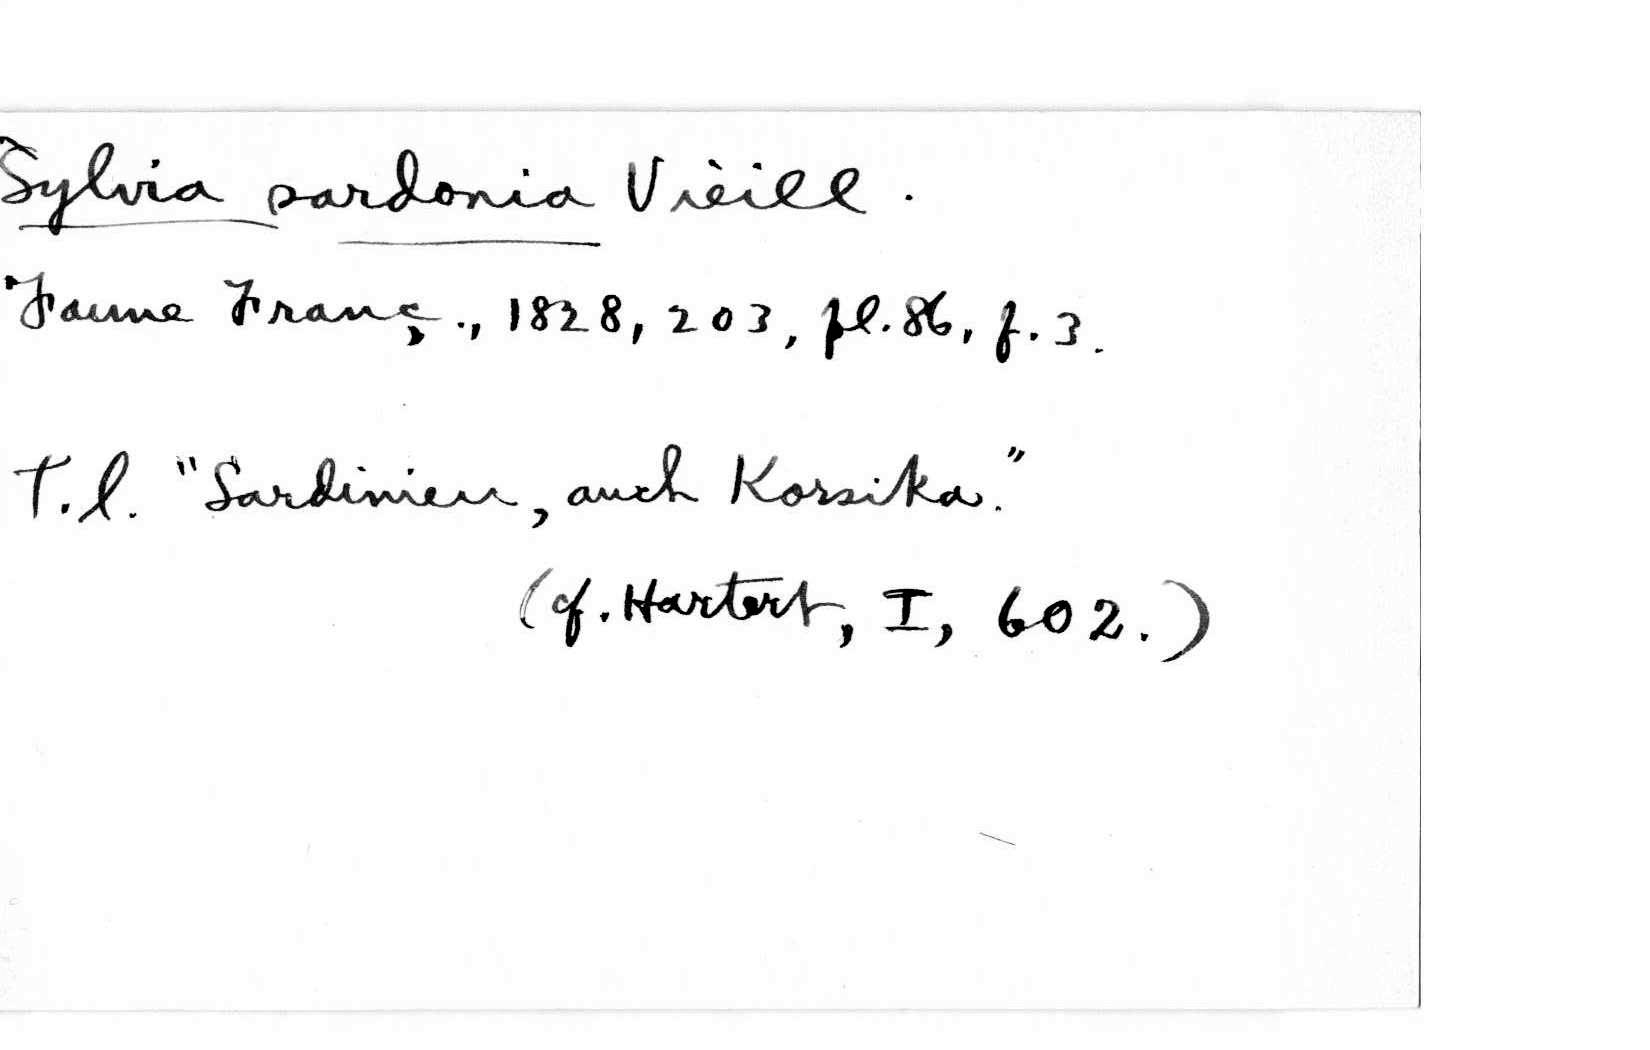 Sylvia sardonia Vieill.
Faune Franç., 1828, 203, pl. 86, f. 3.
T.l. "Sardinien, auch Korsika."
(cf. Hartert, I, 602.)